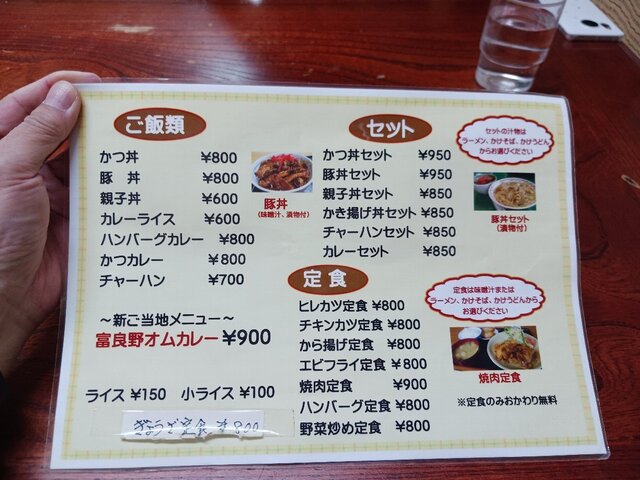 ご飯類
かつ丼 ¥800
豚 丼 ¥800
親子丼 ¥600
カレーライス ¥600
ハンバーグカレー ¥800
かつカレー ¥800
チャーハン ¥700
豚丼
(味噌汁、漬物付)
～新ご当地メニュー～
富良野オムカレー ¥900
ライス ¥150 小ライス ¥100
ぎょうざ定食 ¥800
セット
かつ丼セット ¥950
豚丼セット ¥950
親子丼セット ¥850
かき揚げ丼セット ¥850
チャーハンセット ¥850
カレーセット ¥850
セットの汁物は
ラーメン、かけそば、かけうどん
からお選びください
豚丼セット
(漬物付)
定食
ヒレカツ定食 ¥800
チキンカツ定食 ¥800
から揚げ定食 ¥800
エビフライ定食 ¥800
焼肉定食 ¥900
ハンバーグ定食 ¥800
野菜炒め定食 ¥800
定食は味噌汁または
ラーメン、かけそば、かけうどんから
お選びください
焼肉定食
※定食のみおかわり無料